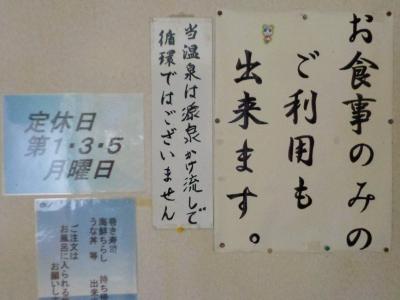 お食事のみの
ご利用も
出来ます。
当温泉は源泉かけ流しで
循環ではございません
定休日
第1・3・5
月曜日
巻き寿司
海鮮ちらし 持ち帰
うな丼 等 出来
ご注文は
お風呂に入られる
お願いし